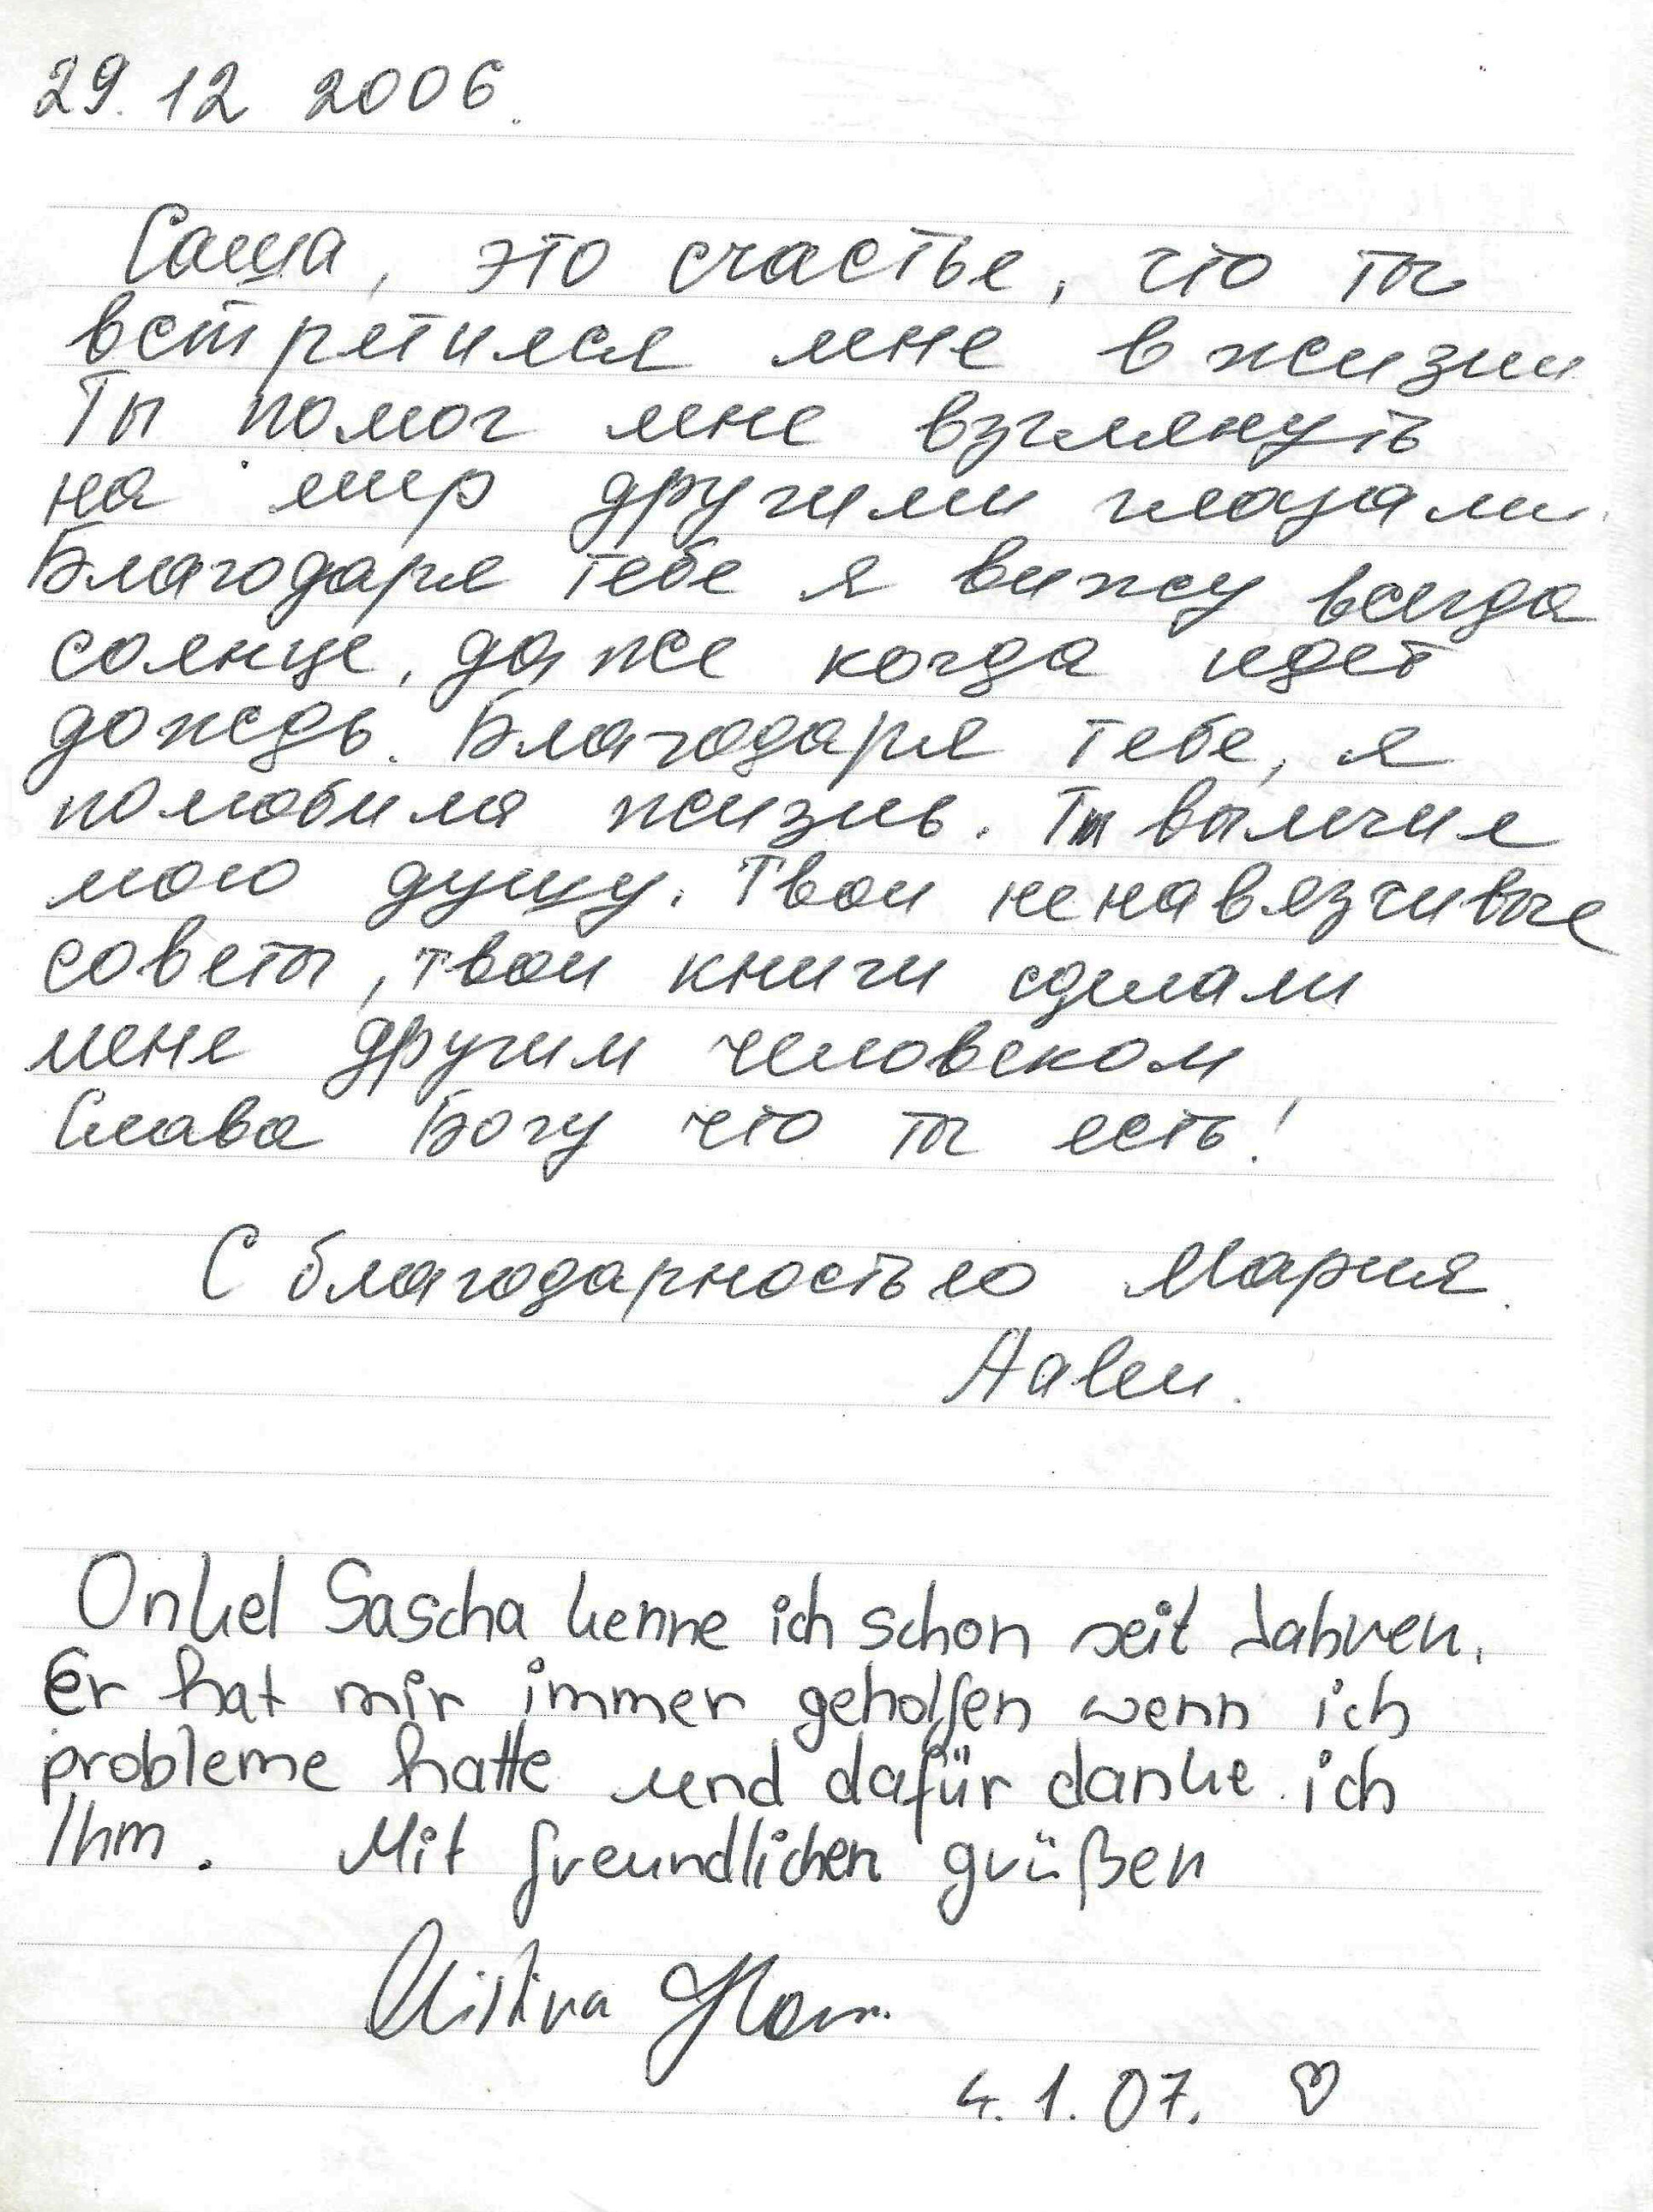 29.12 2006.
Саша, это счастье, что ты
встретился мне в жизни
Ты помог мне взглянуть
на мир другими глазами.
Благодаря тебе я вижу всегда
солнце, даже когда идет
дождь. Благодаря тебе, я
полюбила жизнь. Ты вылечил
мою душу. Твои ненавязчивые
советы, твои книги сделали
меня другим человеком
Слава Богу что ты есть!
С благодарностью Мария.
Aalen.
Onkel Sascha kenne ich schon seit Jahren.
Er hat mir immer geholfen wenn ich
probleme hatte und dafür danke ich
Ihm. Mit freundlichen grüßen
4.1.07. ♡